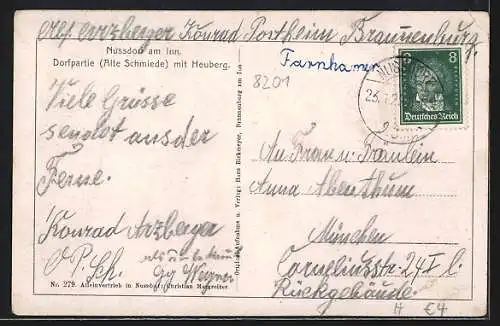 Konrad Postheim Brannenburg
Nussdorf am Inn.
Dorfpartie (Alte Schmiede) mit Heuberg.
Farnhamen
8201
Viele Grüsse
sendet aus der
Ferne.
Konrad Arzberger
O. P. Sch.
Nr. 279. Alleinvertrieb in Nussdorf: Christian Margreiter
Original-Aufnahme u. Verlag: Hans Birkmeyer, Brannenburg am Inn
8 8
Deutsches Reich
NUSSDORF
An Frau u. Fräulein
Anna Abenthum
München
Corneliusstr. 24 I l.
Rückgebäude.
H €4